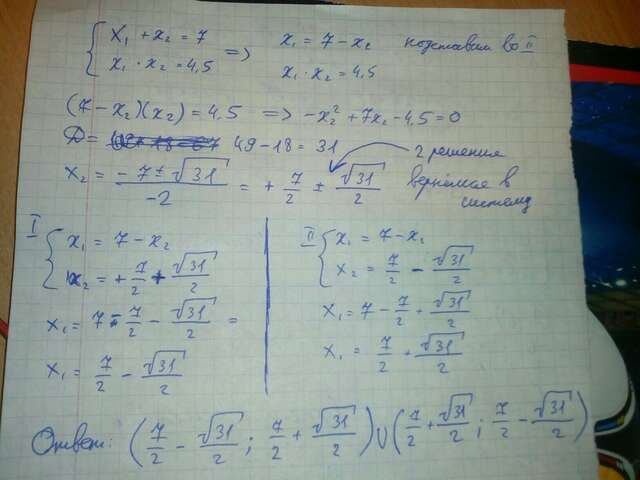 { x₁ + x₂ = 7 => x₁ = 7 - x₂ подставим во II
{ x₁ · x₂ = 4,5 x₁ · x₂ = 4,5
(7 - x₂)(x₂) = 4,5 => -x₂² + 7x₂ - 4,5 = 0
D = 49 - 18 = 31
x₂ = (-7 ± √31)/-2 = + 7/2 ± √31/2
2 решения
вернёмся в
систему
I { x₁ = 7 - x₂
{ x₂ = + 7/2 + √31/2
x₁ = 7 - 7/2 - √31/2 =
x₁ = 7/2 - √31/2
II { x₁ = 7 - x₂
{ x₂ = 7/2 - √31/2
x₁ = 7 - 7/2 + √31/2
x₁ = 7/2 + √31/2
Ответ: (7/2 - √31/2 ; 7/2 + √31/2) ∪ (7/2 + √31/2 ; 7/2 - √31/2)